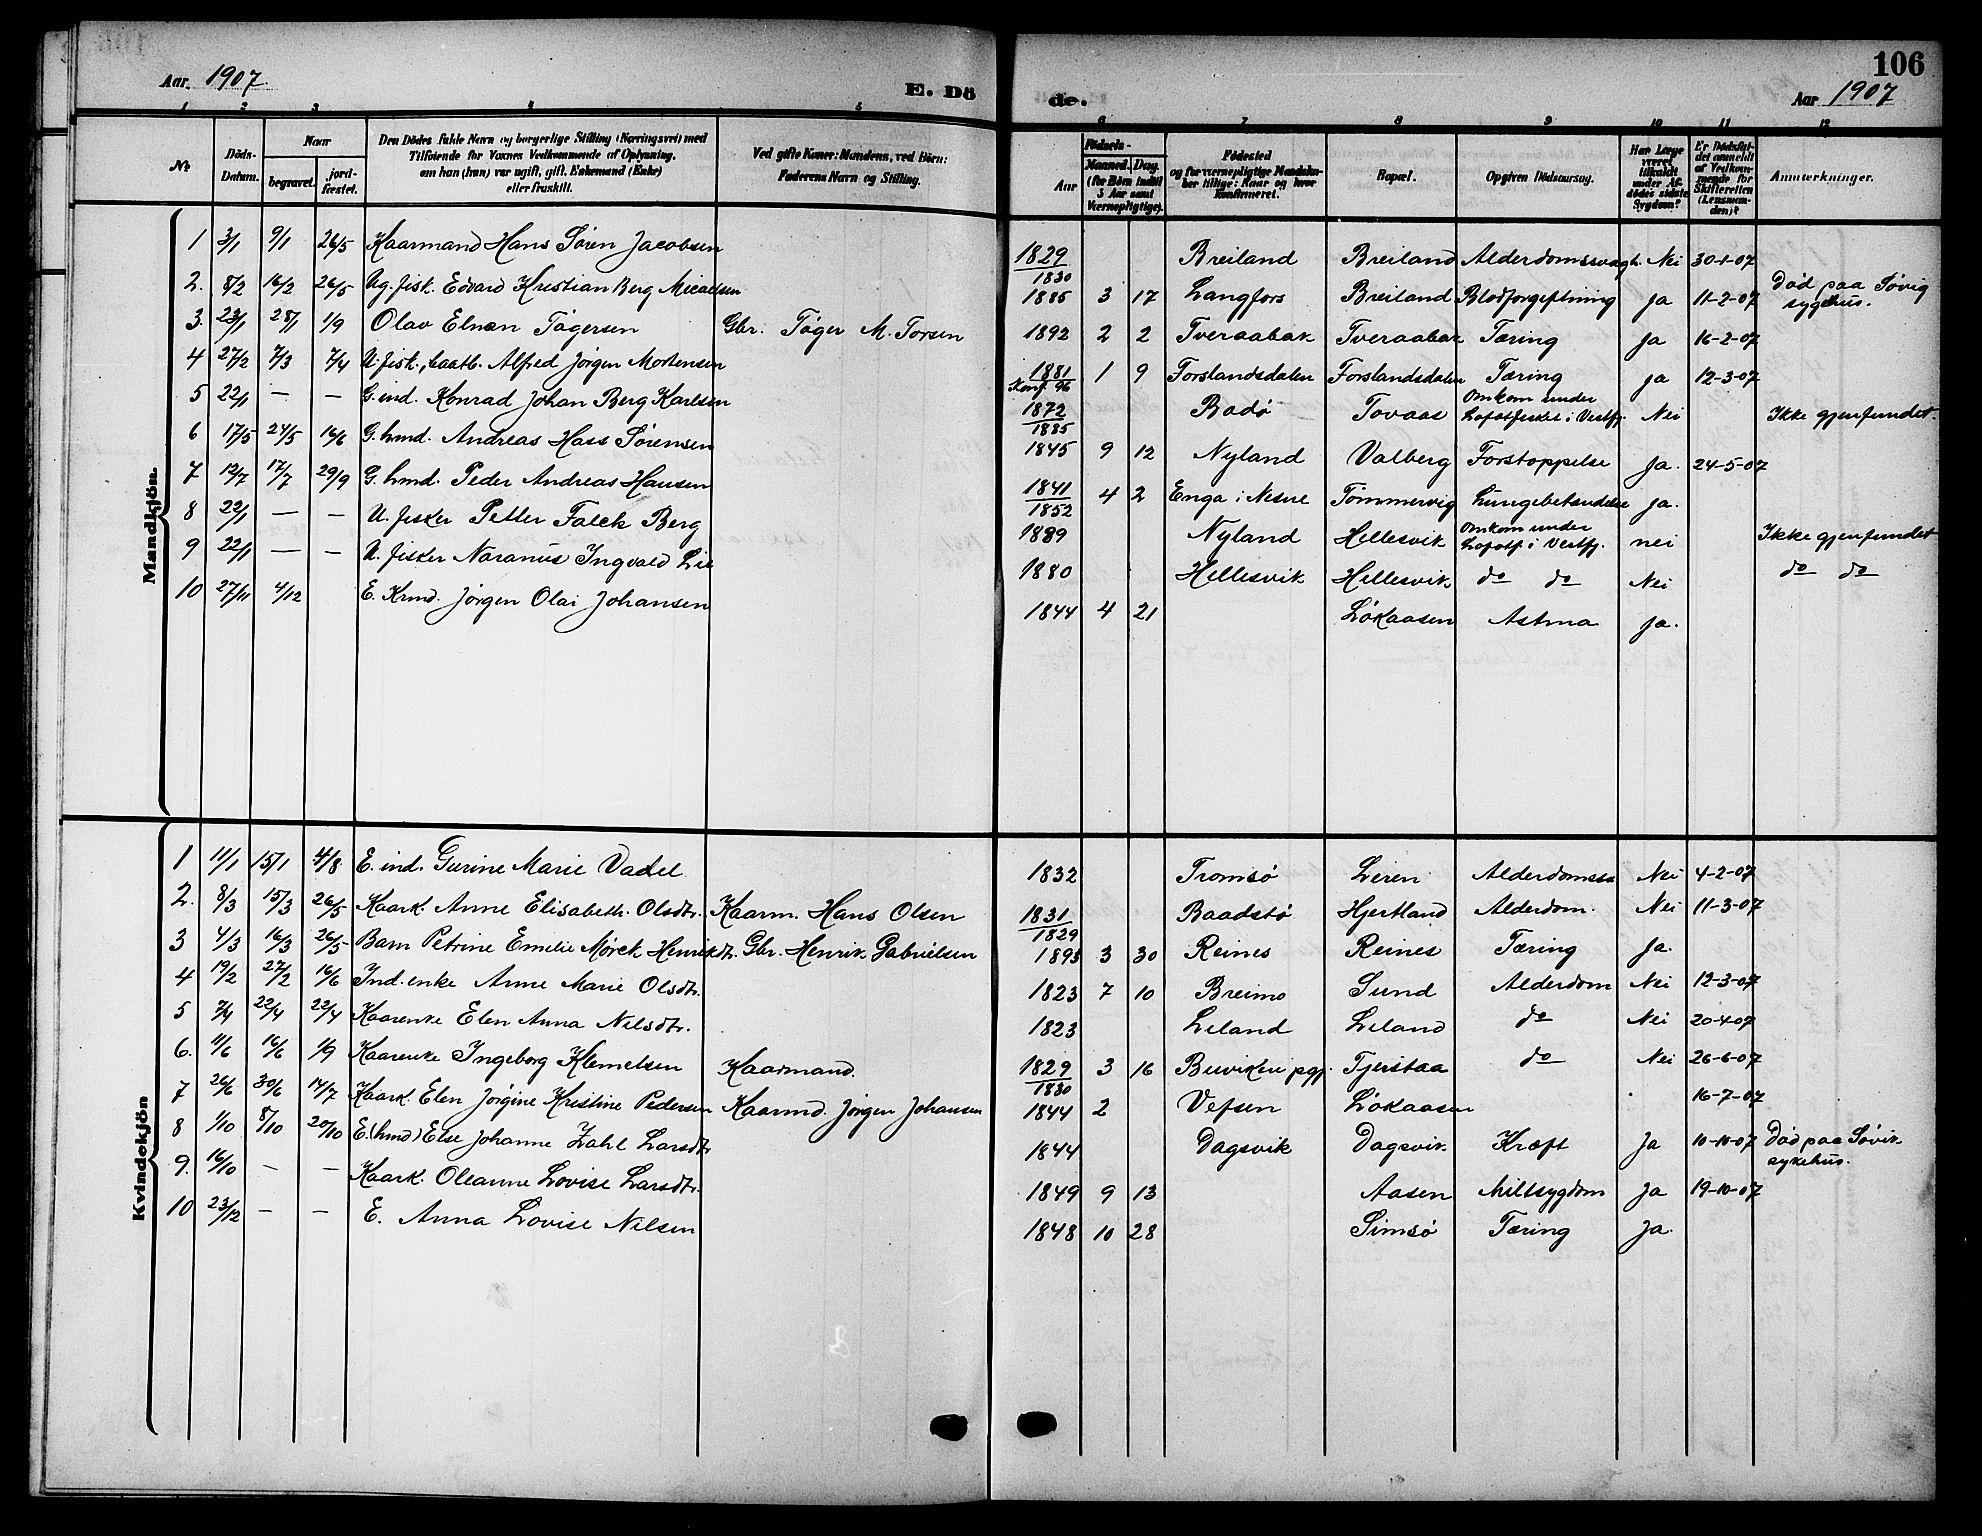 Aar 1907
E. Dö
1 2 3 4 5
No
Döds-Datum.
Naar
begravet.
jordfæstet.
Den Dödes fulde Navn og borgerlige Stilling (Næringsvei) med
Tilføiende for Voxnes Vedkommende af Oplysning,
om han (hun) var ugift, gift, Enkemand (Enke)
eller fraskilt.
Ved gifte Koner: Mandens, ved Börn:
Faderens Navn og Stilling.
Mandkjön
1 3/1 9/1 26/5 Kaarmand Hans Søren Jacobsen
2. 8/2 16/2 26/5 Ug. fisk. Edvard Kristian Berg Micaelsen
3. 23/1 28/1 1/9 Olav Elnan Tøgersen Gbr. Tøger M. Torsen
4 27/2 7/3 7/4 U. fisk., baatb. Alfred Jørgen Mortensen
5 22/1 — — G. ind. Konrad Johan Berg Karlsen
6 17/5 24/5 16/6 G. hmd. Andreas Hass Sørensen
7 12/7 17/7 29/9 G. hmd. Peder Andreas Hansen
8 22/1 — — U. fisker Petter Falck Berg
9 22/1 — — U. fisker Naranus Ingvald Lie
10 27/11 4/12 E. Krmd. Jørgen Olai Johansen
Kvindekjön
1 11/1 15/1 4/8 E. ind. Gurine Marie Vadel
2. 8/3 15/3 26/5 Kaark. Anne Elisabeth Olsdtr. Kaarm. Hans Olsen
3 4/3 16/3 26/5 Barn Petrine Emelie Mørck Henrikdtr. Gbr. Henrik Gabrielsen
4 19/2 27/2 16/6 Ind. enke Anne Marie Olsdtr.
5 7/4 22/4 22/4 Kaarenke Elen Anna Nilsdtr.
6. 11/6 16/6 1/9 Kaarenke Ingeborg Klemetsen Kaarmand.
7 26/6 30/6 14/7 Kaark. Elen Jørgine Kristine Pedersen Kaarmd. Jørgen Johansen
8 1/10 8/10 20/10 E. (hmd) Else Johanne Zahl Larsdtr
9. 16/10 — — Kaark. Oleanne Lovise Larsdtr.
10 23/12 — — E. Anna Lovise Nilsen
106
de.
Aar 1907
6 7 8 9 10 11 12
Aar
Födsels-
Maaned. Dag.
(for Börn indtil
5 Aar samt
Værnepligtige).
Födested
og for værnepligtige Mandskaber tillige: Naar og hvor
konfirmeret.
Bopæl.
Opgiven Dödsaarsag.
Har Læge
været
tilkaldt
under Afdödes sidste
Sygdom?
Er Dödsfaldet anmeldt
af Vedkommende for
Skifteretten
(Lensmanden)?
Anmærkninger.
1829/1830 Breiland Breiland Alderdomssvagh. Nei 30-1-07
1885 3 17 Langfors Breiland Blodforgiftning Ja 11-2-07 Død paa Søvig
sygehus.
1892 2 2 Tveraabak Tveraabak Tæring Ja 16-2-07
1881 Konf. 96 1 9 Forslandsdalen Forslandsdalen Tæring Ja 12-3-07
1872/1885 Bodø Tovaas Omkom under
Lofotfisket i Vestfj. Nei Ikke gjenfundet.
1845 9 12 Nyland Valberg Forstoppelse Ja. 24-5-07
1841/1852 4 2 Enga i Nesne Tømmervig Lungebetændelse Ja.
1889 Nyland Hellesvik Omkom under
Lofotf. i Vestfj. nei Ikke gjenfundet
1880 Hellesvik Hellesvik do do Nei do do
1844 4 21 Løkaasen Astma Ja.
1832 Tromsø Leren Alderdomssv Nei 4-2-07
1831/1829 Baadstø Hjertland Alderdom. Nei 11-3-07
1893 3 30 Reines Reines Tæring Ja.
1823 7 10 Breimo Sund Alderdom Nei 12-3-07
1823 Leland Leland do Nei 20-4-07
1829/1830 3 16 Beiviken pgj. Tjerstaa do Nei 26-6-07
1844 2 Vefsen Løkaasen 16-7-07
1844 Dagsvik Dagsvik Kræft Ja 10-10-07 Død paa Søvik
sykehus.
1849 9 13 Aasen Miltsygdom Ja 19-10-07
1848 10 28 Simsø Tæring Ja.